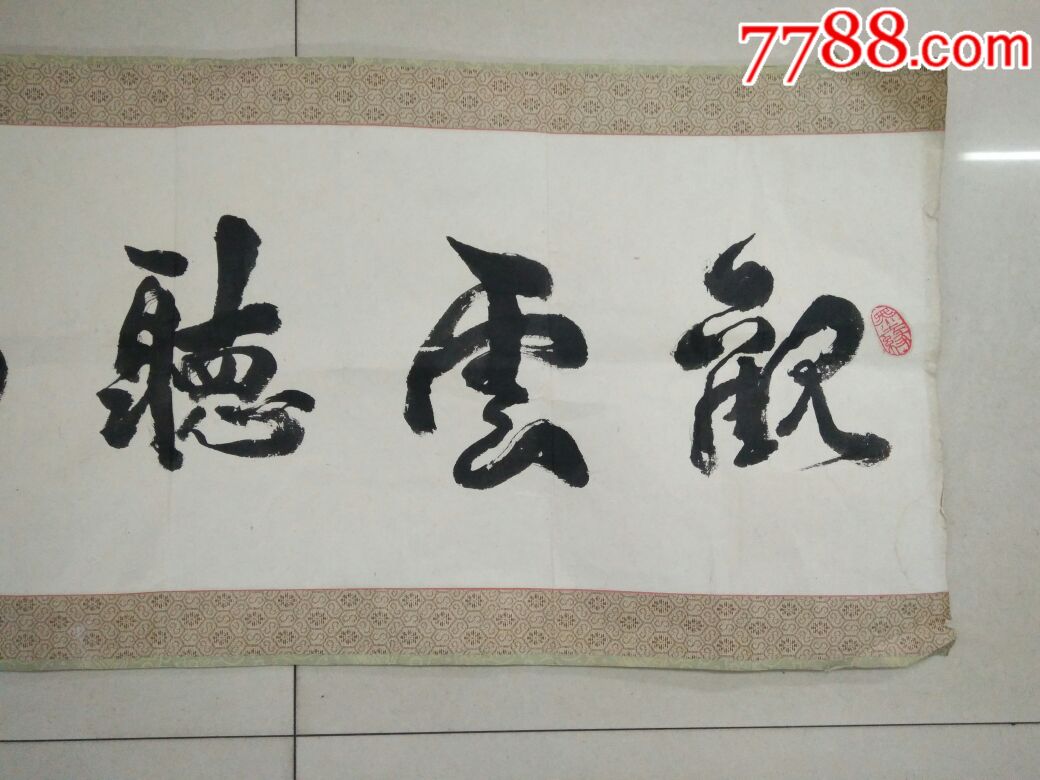 7788.com
觀雲聽